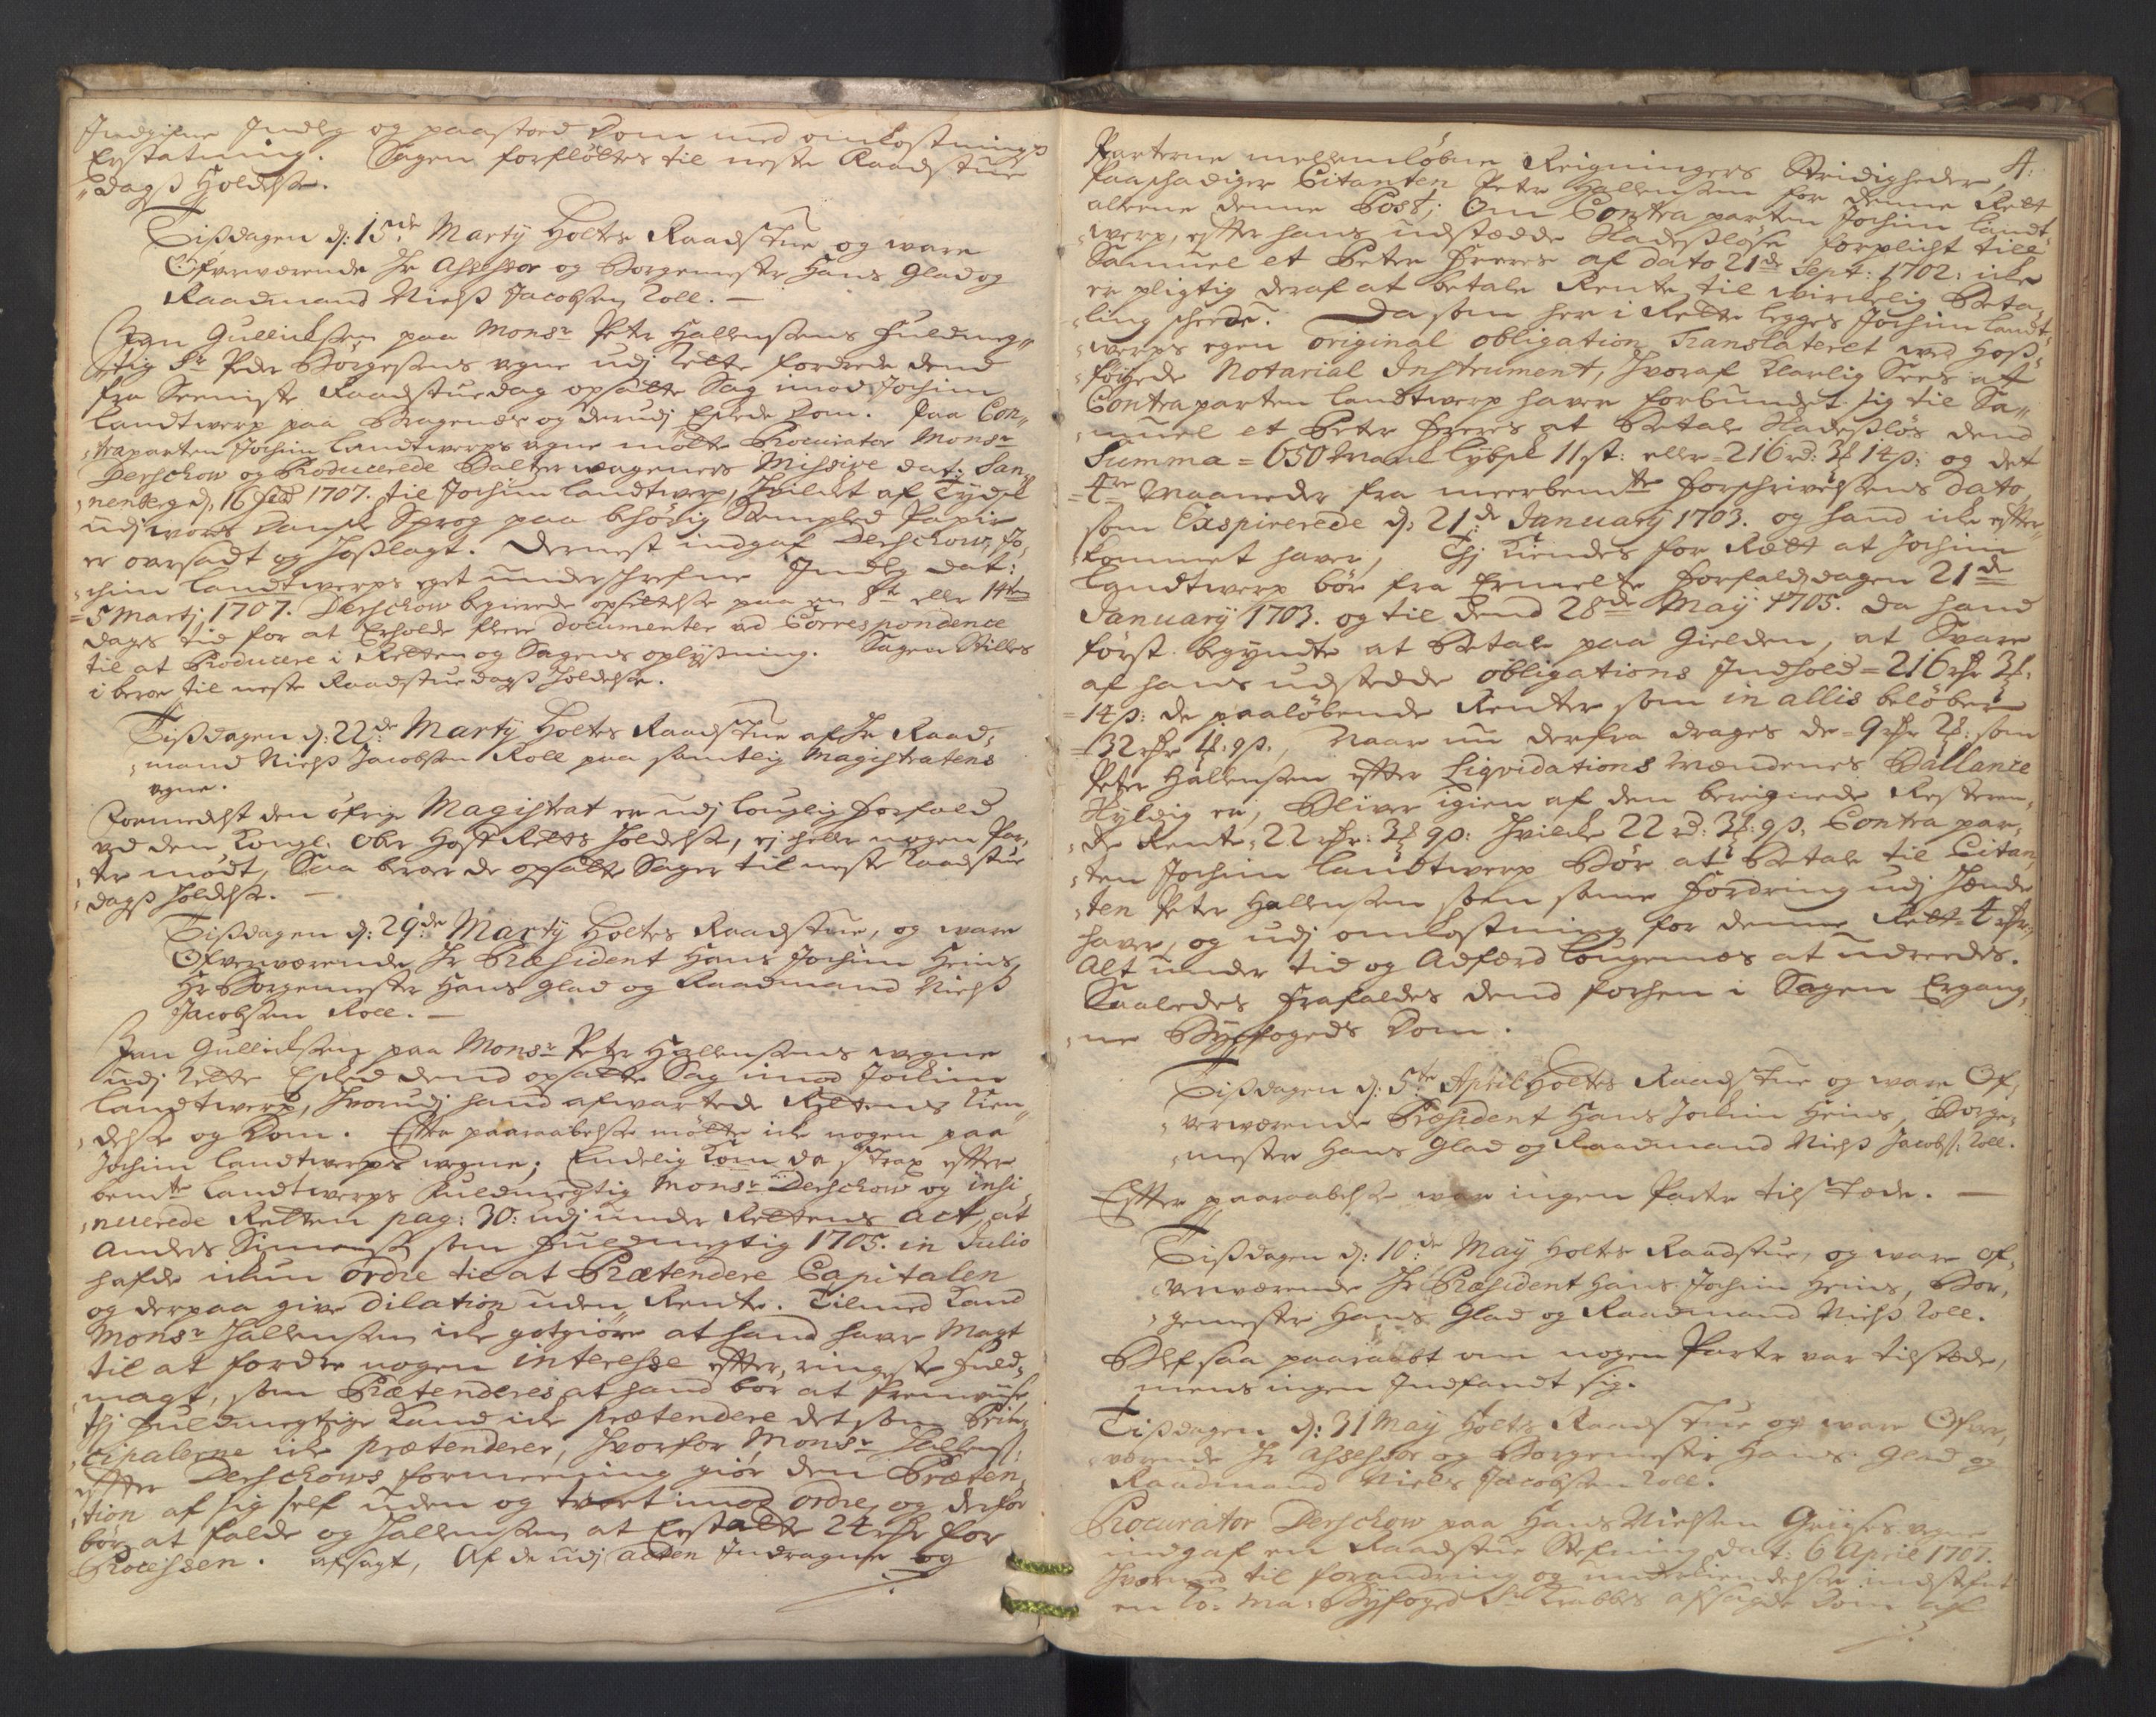 Indgifne Indlæg og paastoed Dom med omkostnings
Erstatning. Sagen forfløttes til neste Raadstue
dags Holdelse.
Tissdagen d: 15de Martij Holtes Raadstue og ware
Ofverværende Hr Assessor og Borgemester Hans Glad og
Raadmand Nielss Jacobsen Roll. —
Jan Gullichsen paa Monsr Peter Hallensens Fuldmeg„
tig Sr Peder Borgesens vegne udj Rette fordrede dend
fra Seeniste Raadstuedag opsatte Sag imod Jochim
Landtwerp paa Bragenæs og derudj Eskede Dom. Paa Con„
„traparten Jochim Landtwerps vegne mötte Procurator Monsr
Derschow og Producerede Balzer wageners Missive dat: San„
nenberg d. 16 1707. til Jochim Landtwerp, hvilcket af Tydsk
udj wores Danske Sprog paa behörig Stempled Papir
er oversadt og hosslagt. Dernest indgaf Derschow, Jo„
„chim Landtwerps eget underschrefne Indlæg dat:
5 Martj 1707. Derschow begierede opsettelse paa en 8te eller 14ten
dages tid for at Erholde flere documenter ved Correspondence
til at Producere i Retten og Sagens oplyssning. Sagen Stilles
i beroe til neste Raadstue dags holdelse.
Tissdagen d: 22de Martij Holtes Raadstue af Hr Raad„
„mand Nielss Jacobsen Roll paa samtlig Magistratens
vegne.
Formedelst den öfrige Magistrat er udj louglig forfald
ved den Kongl. Ober Hoff Retts holdelse, ej heller nogen Par„
„ter mödt, Saa beroer de opsatte Sager til neste Raadstue
dags holdelse. —
Tissdagen d: 29de Martij Holtes Raadstue, og ware
Ofverværende Hr Præsident Hans Jochim Heins,
Hr Borgemester Hans Glad og Raadmand Nielss
Jacobsen Roll. —
Jan Gullichsen paa Monsr Peter Hallensens vegne
udj Rette Eskede dend opsatte Sag imod Jochim
Landtwerp, hvorudj hand afwartede Rettens Kien„
delse og Dom. Efter paaraabelse mötte icke nogen paa
Jochim Landtwerps vegne; Endelig kom da strax effter
bemte Landtwerps fuldmegtig Monsr Derschow og insi„
„nuerede Retten pag: 30: udj under Rettens Act, at
Anders Simensen som fuldmegtig 1705. in Julio
hafde ickun ordre til at Prætendere Capitalen
og derpaa give dilation uden Rente. Tilmed kand
Monsr Hallensen icke gotgiöre at hand haver Magt
til at fordre nogen interesse effter, ringeste fuld„
magt, som Prætenderes at hand bör at fremvise
thj fuldmegtige kand icke prætendere det som Prin„
cipalerne icke prætenderer, hvorfor Monsr Hallens:
effter Derschows formeening giör den Præten„
„tion af sig self uden og tvert imod ordre, og derfor
bör at falde og Hallensen at Erstatte 24 rdr for
Processen. Afsagt, Af de udj acten Indragne og
4.
Parterne mellemlöbne Reigningers Stridigheder,
Paaschadiger Citanten Peter Hallensen for denne Rett
alleene denne Post; Om Contraparten Jochim Landt„
„werp, effter hans udstædde Skadesslöse forplicht till
Samuel et Peter Freres af dato 21de Sept: 1702: icke
er pligtig deraf at betale Rente til wirckelig Beta„
„ling scheede. Da som her i Rette legges Jochim Landt„
„werps egen original obligation Translateret med hoss„
„föyede Notarial Instrument, hvoraf klarlig sees at
Contraparten Landtwerp haver forbundet sig til Sa„
„muel et Peter Freres at betale Skadesslös dend
Summa = 650 Marck lybsk 11 st: eller = 216 rd: 3 14 s: og det
4re Maaneder fra meerbemte forschrivelsens dato
som Exspirerede d: 21de January 1703. og hand icke effter„
kommet haver, Thj kiendes for Rætt at Jochim
Landtwerp bör fra Ermelte forfaldsdagen 21de
January 1703. og til dend 28de May 1705. da hand
först begyndte at betale paa Gielden, at Svare
af hans udstedde obligations Indhold = 216 rdr 3
14 s: de paalöbende Renter som in allis belöber
32 rdr 1 9 s., Naar nu derfra drages de = 9 rdr 2 som
Peter Hallensen effter Liqvidations mændenes Ballance
Skyldig er, bliver igien af den bereignede Resteren„
„de Rente, 22 rdr: 3 9 s: hvilcke 22 rd: 3 9 s. Contra par„
„ten Jochim Landtwerp bör at betale til Citan„
„ten Peter Hallensen som same fordring udj hænde
haver, og udj omkostning for denne Rett 4 rdr:
Alt under tid og Adfærd lougmes at udreedes.
Saaledes frafaldes dend forhen i Sagen Ergang„
„ne Byefogeds Dom.
Tissdagen d: 5te April Holtes Raadstue og ware Of„
„verværende Præsident Hans Jochim Heins, Borge„
„mester Hans Glad og Raadmand Nielss Jacobs: Roll.
Effter paaraabelse war ingen Parter tilstæde. —
Tissdagen d: 10de May Holtes Raadstue, og ware Of„
„verværende Hr Præsident Hans Jochim Heins, Bor„
„gemester Hans Glad og Raadmand Nielss Roll.
Blef saa paaraabt om nogen Parter var tilstæde,
mens ingen Indfandt sig.
Tissdagen d: 31 May Holtes Raadstue og ware Ofver„
„værende Hr Assessor og Borgemester Hans Glad og
Raadmand Niels Jacobsen Roll.
Procurator Derschow paa Hans Nielsen Griises vegne
indgaf en Raadstue Stefning dat: 6 April 1707.
hvormed til forandring og underkiendelse indstefnt
en Ko: Ma: Byfoged Sr Krabbes afsagde Dom af